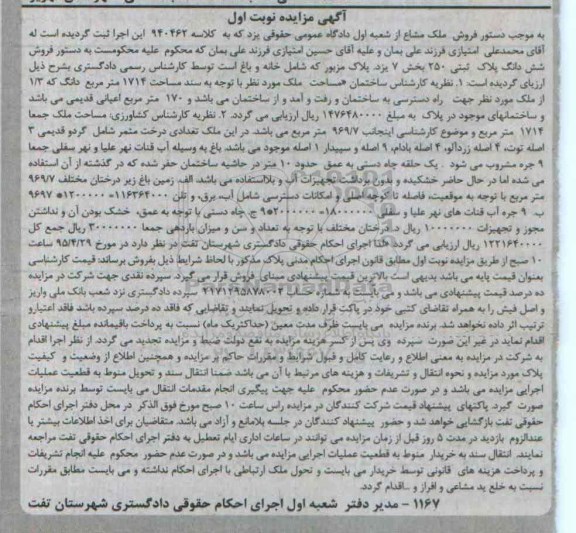 آگهی مزایده نوبت اول
به موجب دستور فروش ملک مشاع از شعبه اول دادگاه عمومی حقوقی یزد که به کلاسه ۹۴۰۴۶۲ این اجرا ثبت گردیده است له
آقای محمدعلی امتیازی فرزند علی بمان و علیه آقای حسین امتیازی فرزند علی بمان که محکوم علیه محکومست به دستور فروش
شش دانگ پلاک ثبتی ۲۵۰ بخش ۷ یزد. پلاک مزبور که شامل خانه و باغ است توسط کارشناس رسمی دادگستری بشرح ذیل
ارزیای گردیده است. ۱. نظریه کارشناس ساختمان *مساحت ملک مورد نظر با توجه به سند مساحت ۱۷۱۴ متر مربع دانگ که ۱/۳
از ملک مورد نظر جهت راه دسترسی به ساختمان و رفت و آمد و از ساختمان می باشد و ۱۷۰ متر مربع اعیانی قدیمی می باشد
و ساختمانهای موجود در پلاک به مبلغ ۱۴۷۶۴۸۰۰۰۰ ریال ارزیابی می گردد. ۲. نظریه کارشناس کشاورزی: مساحت ملک جمعا
۱۷۱۴ متر مربع و موضوع کارشناسی اینجانب ۹۶۹/۷ متر مربع می باشد. در این ملک تعدادی درخت مثمر شامل گردو قدیمی ۳
اصله توت، ۴ اصله زردآلو، ۴ اصله بادام، ۹ اصله و سپیدار ۱ اصله موجود می باشد. باغ به وسیله آب قنات نهر علیا و نهر سفلی جمعا
۹ جره مشروب می شود . یک حلقه چاه دستی به عمق حدود ۱۰ متر در حاشیه ساختمان حفر شده که در گذشته از آن استفاده
می شده اما در حال حاضر خشکیده و بدون برداشت تجهیزات آب و بلااستفاده می باشد. الف. زمین باغ زیر درختان مختلف ۹۶۹/۷
متر مربع با توجه به موقعیت، فاصله تا کوچه اصلی و امکانات دسترسی شامل آب، برق، و تلفن ۱۱۶۳۶۴۰۰۰=۱۲۰۰۰۰* ۹۶۹۷
ب. ۹ جره آب قنات های نهر علیا و سفلی ۱۸۰۰۰۰۰۰=۲۰۰۰۰۰۰*۹ ج. چاه دستی با توجه به عمق، خشک بودن آن و نداشتن
مجوز و تجهیزات ۱۰۰۰۰۰۰۰ ریال د. درختان مختلف با توجه به تعداد و سن و میزان باردهی جمعا ۳۰۰۰۰۰۰۰ ریال جمع کل
۱۲۲۱۶۴۰۰۰۰ ریال ارزیابی می گردد. *لذا اجرای احکام حقوقی دادگستری شهرستان تفت در نظر دارد در مورخ ۹۵/۴/۲۹ ساعت
۱۰ صبح از طریق مزایده نوبت اول مطابق قانون اجرای احکام مدنی پلاک مذکور با لحاظ شرایط ذیل بفروش برساند: قیمت کارشناسی
بعنوان قیمت پایه می باشد بدیهی است بالاترین قیمت پیشنهادی مبنای فروش قرار می گیرد. سپرده نقدی جهت شرکت در مزایده
ده درصد قیمت پیشنهادی می باشد و می بایست به شماره حساب سپرده دادگستری نزد شعب بانک ملی واریز
و اصل فیش را به همراه تقاضای کتبی خود در پاکت قرار داده و تحویل نمایند و تقاضایی که فاقد ده درصد سپرده باشد فاقد اعتبارو
ترتیب اثر داده نخواهد شد. برنده مزایده می بایست ظرف مدت معین (حداکثریک ماه) نسبت به پرداخت باقیمانده مبلغ پیشنهادی
اقدام نماید در غیر این صورت سپرده وی پس از کسر هزینه مزایده به نفع دولت ضبط و مزایده تجدید می گردد. از نظر اجرا اقدام
به شرکت در مزایده به معنی اطلاع و رعایت کامل و قبول شرایط و مقررات حاکم بر مزایده و همچنین اطلاع از وضعیت و کیفیت
پلاک مورد مزایده و نحوه انتقال و تشریفات و هزینه های مرتبط با آن می باشد ضمنا انتقال سند و تحویل منوط به قطعیت عملیات
اجرایی مزایده می باشد و در صورت عدم حضور محکوم علیه جهت پیگیری انجام مقدمات انتقال می بایست توسط برنده مزایده
صورت گیرد. پاکتهای پیشنهاد قیمت شرکت کنندگان در مزایده راس ساعت ۱۰ صبح مورخ فوق الذکر در محل دفتر اجرای احکام
حقوقی تفت بازگشایی خواهد شد و حضور پیشنهاد کنندگان در جلسه بلامانع و آزاد می باشد. متقاضیان برای اخذ اطلاعات بیشتر یا
عندالزوم بازدید در مدت ۵ روز قبل از زمان مزایده می توانند در ساعات اداری ایام تعطیل به دفتر اجرای احکام حقوقی تفت مراجعه
نمایند. انتقال سند به خریدار منوط به قطعیت عملیات اجرایی مزایده می باشد و در صورت عدم حضور محکوم علیه انجام تشریفات
و پرداخت هزینه های قانونی توسط خریدار می بایست و تحول ملک ارتباطی با اجرای احکام نداشته و می بایست مطابق مقررات
نسبت به خلع ید مشاعی و افراز و ..اقدام گردد.
۱۱۶۷ - مدیر دفتر شعبه اول اجرای احکام حقوقی دادگستری شهرستان تفت